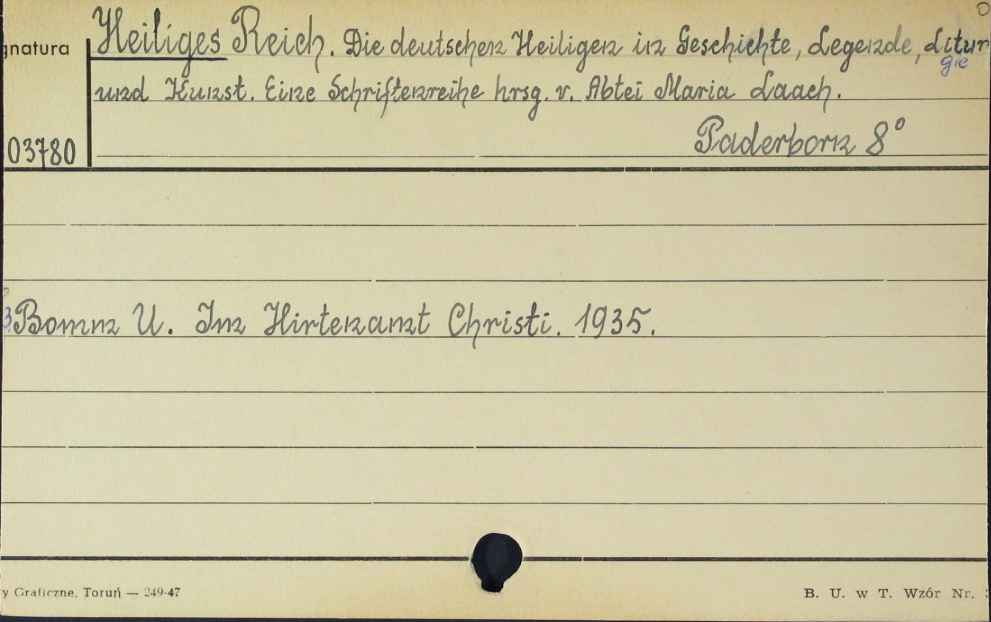 gnatura Heiliges Reich. Die deutschen Heiligen in Geschichte, Legende, Litur
gie
und Kunst. Eine Schriftenreihe hrsg. v. Abtei Maria Laach.
03780 Paderborn 8°
3 Bomm U. Im Hirtenamt Christi. 1935.
y Graficzne, Toruń — 249-47 B. U. w T. Wzór Nr.